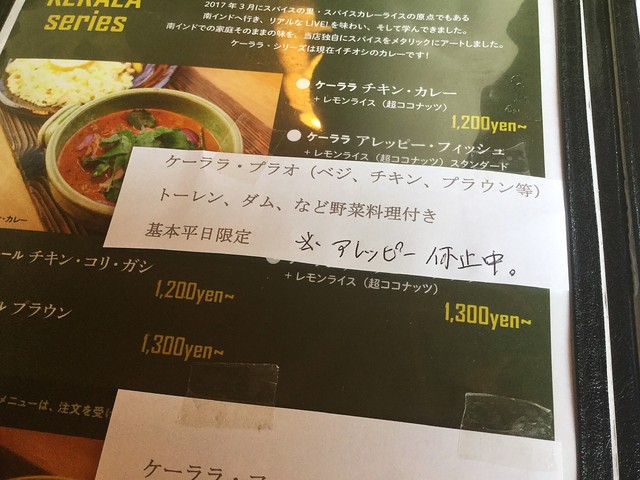 KERALA
series
2017年3月にスパイスの里・スパイスカレーライスの原点でもある
南インドへ行き、リアルなLIVE!を味わい、そして学んできました。
南インドでの家庭そのままの味を、当店独自にスパイスをメタリックにアートしました。
ケーララ・シリーズは現在イチオシのカレーです!
ケーララ チキン・カレー
+ レモンライス（超ココナッツ）
1,200yen~
ケーララ アレッピー・フィッシュ
+ レモンライス（超ココナッツ）スタンダード
ケーララ・プラオ（ベジ、チキン、プラウン等）
トーレン、ダム、など野菜料理付き
基本平日限定 ※ アレッピー 休止中。
・カレー
ール チキン・コリ・ガシ
1,200yen~
+ レモンライス（超ココナッツ）
1,300yen~
ル プラウン
1,300yen~
メニューは、注文を受け
ケーララ・